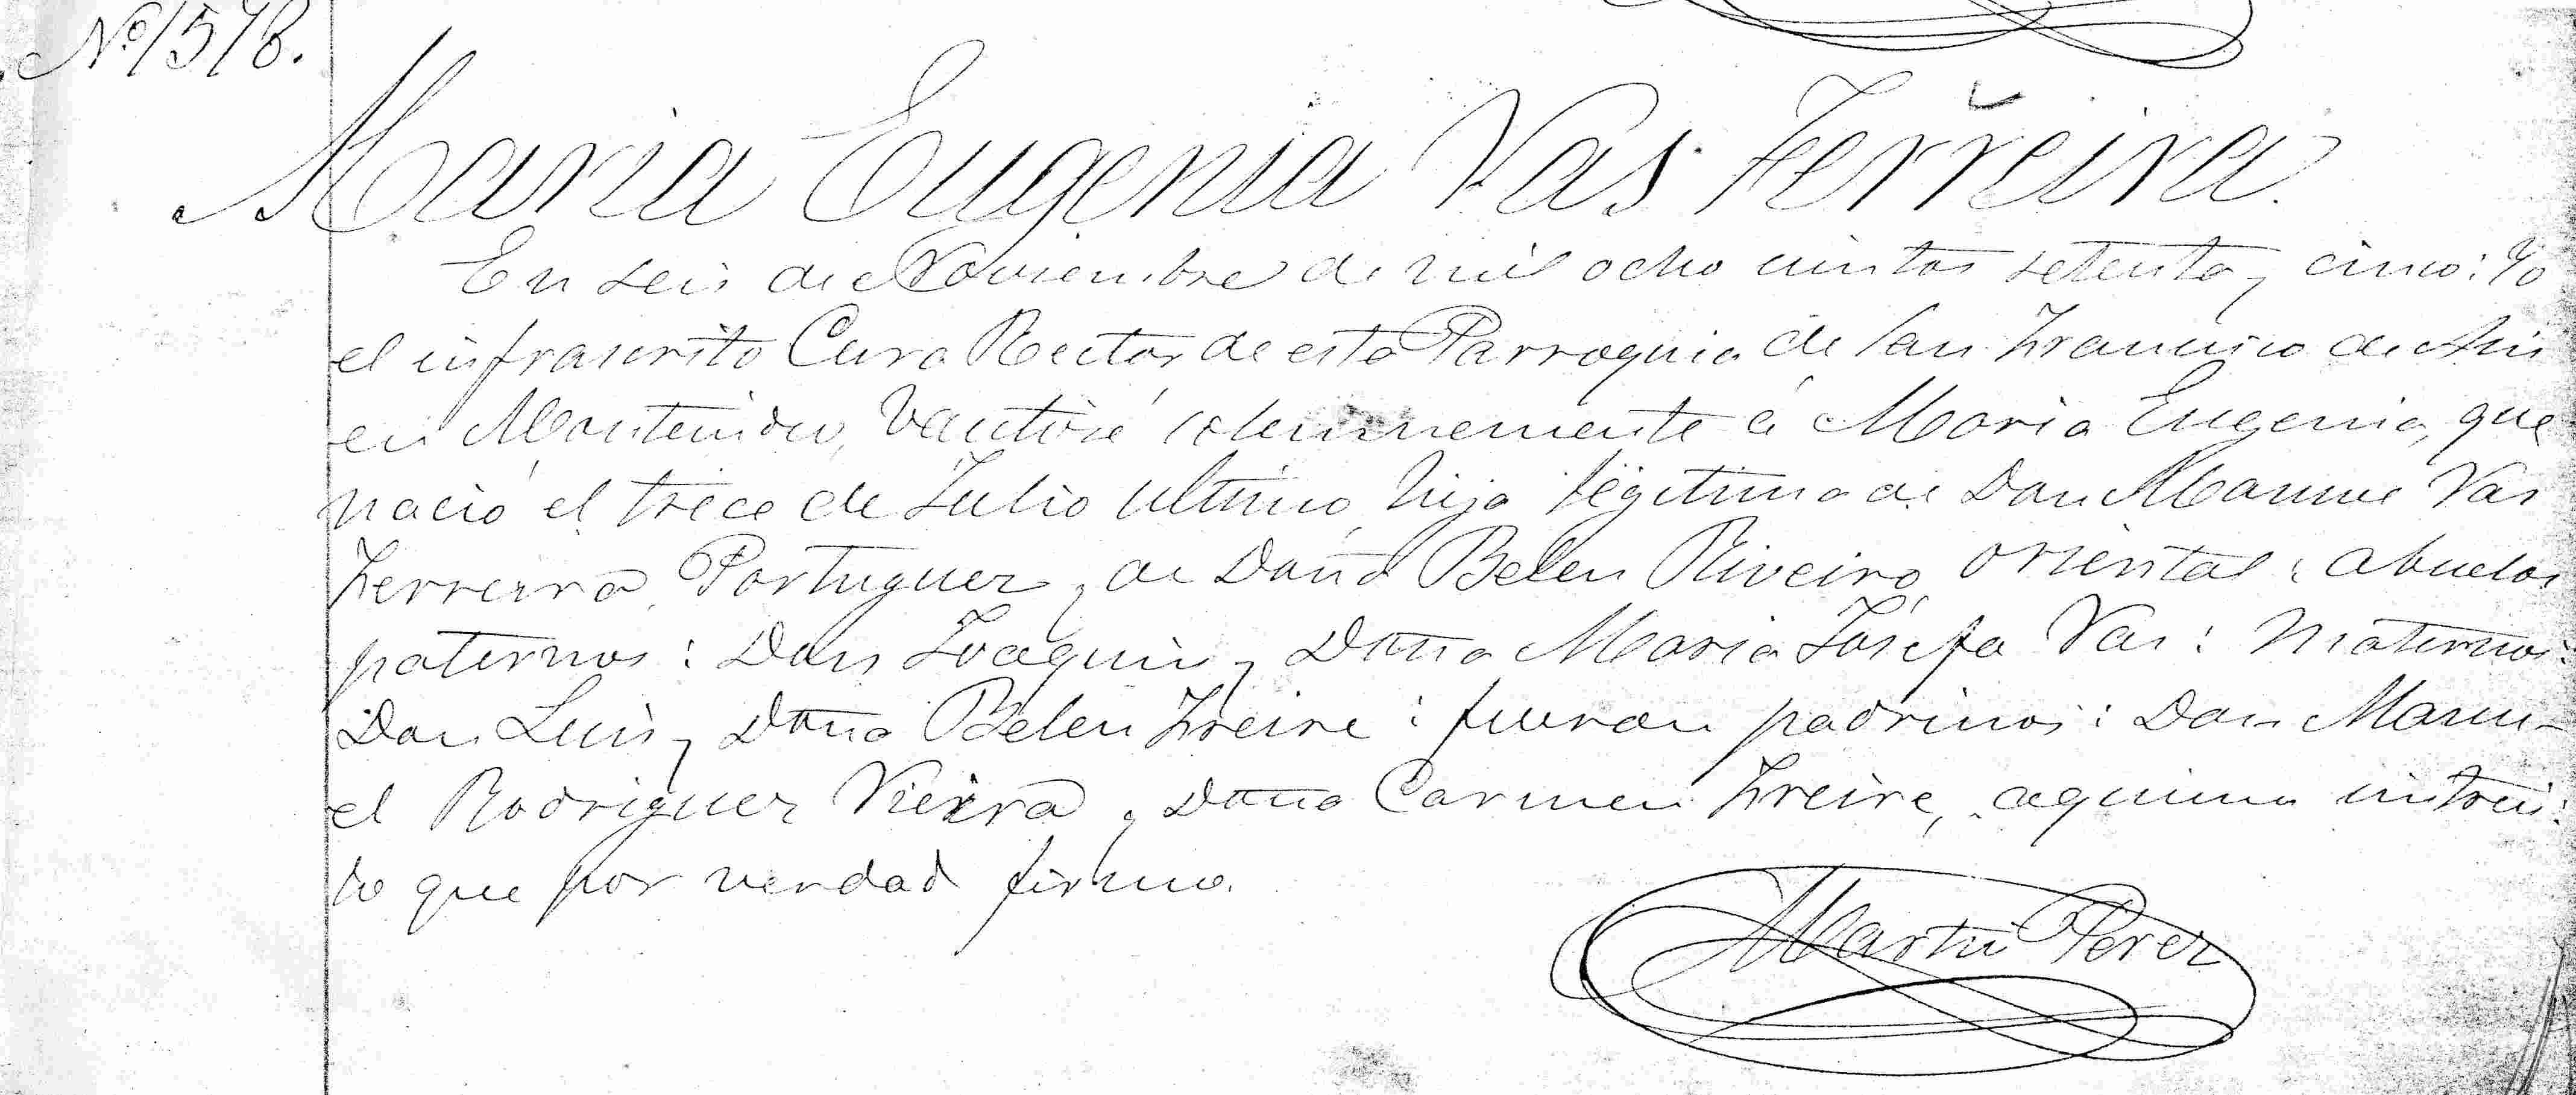 Nº 1578.
Maria Eugenia Vas Ferreira.
En seis de Noviembre de mil ocho cientos setenta y cinco: Yo
el infrascrito Cura Rector de esta Parroquia de San Francisco de Asis
en Montevideo, bautisé solemnemente á Maria Eugenia, que
nació el trece de Julio ultimo, hija legitima de Don Manuel Vas
Ferreira, Portuguez y de Doña Belen Riveiro, oriental: abuelos
paternos: Don Joaquin y Doña Maria Josefa Vas: maternos:
Don Luis y Doña Belen Freire: fueron padrinos: Don Manu-
el Rodriguez Vieira y Doña Carmen Freire, aquienes
lo que por verdad firmo.
Martin Perez